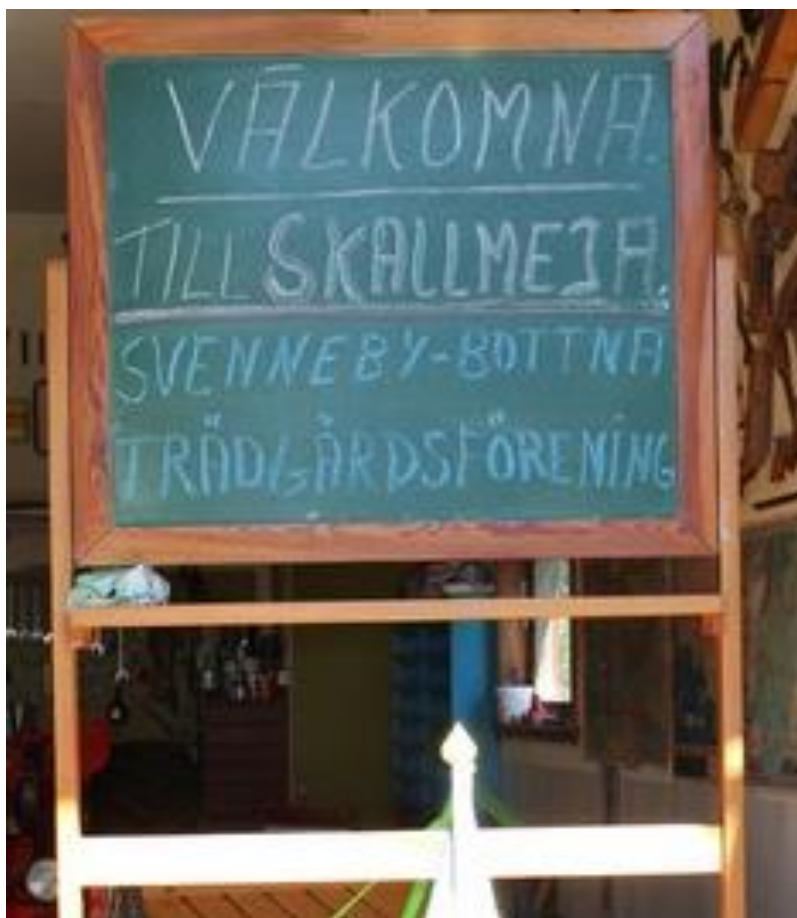 VÄLKOMNA.
TILL SKALLMEJA.
SVENNEBY-BOTTNA
TRÄDGÅRDSFÖRENING